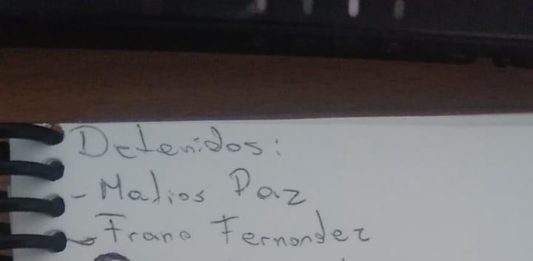 Detenidos:
- Matios Paz
- Frano Fernandez